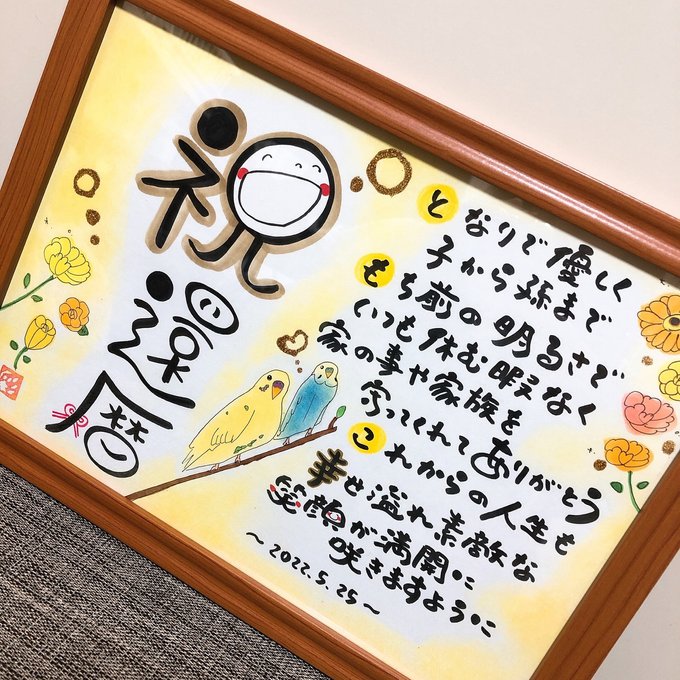 祝
還暦
となりで優しく
子から孫まで
もち前の明るさで
いつも休む暇なく
家の事や家族を
守ってくれてありがとう
これからの人生も
幸せ溢れ素敵な
笑顔が満開に
咲きますように
～2022.5.25～